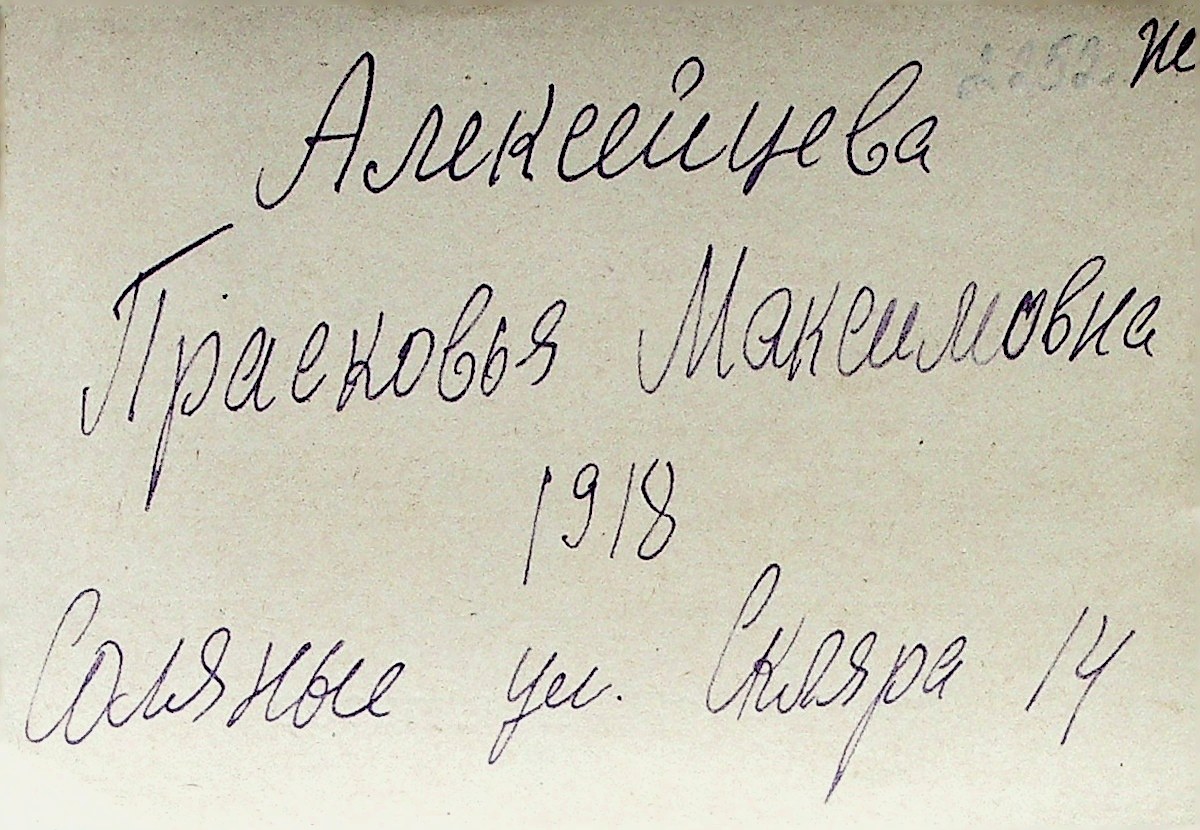 Алексейцева
Прасковья Максимовна
1918
Соляные ул. Скляра 14